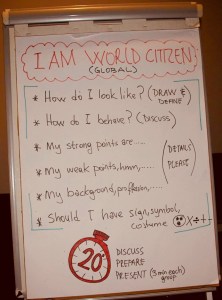 I AM WORLD CITIZEN
(GLOBAL)
* How do I look like? (DRAW & DEFINE)
* How do I behave? (DISCUSS)
* My strong points are.....
* My weak points, hmm,.....
(DETAILS PLEASE)
* My background, proffesion,....
* Should I have sign, symbol, costume
20"
DISCUSS
PREPARE
PRESENT (3 min each) group